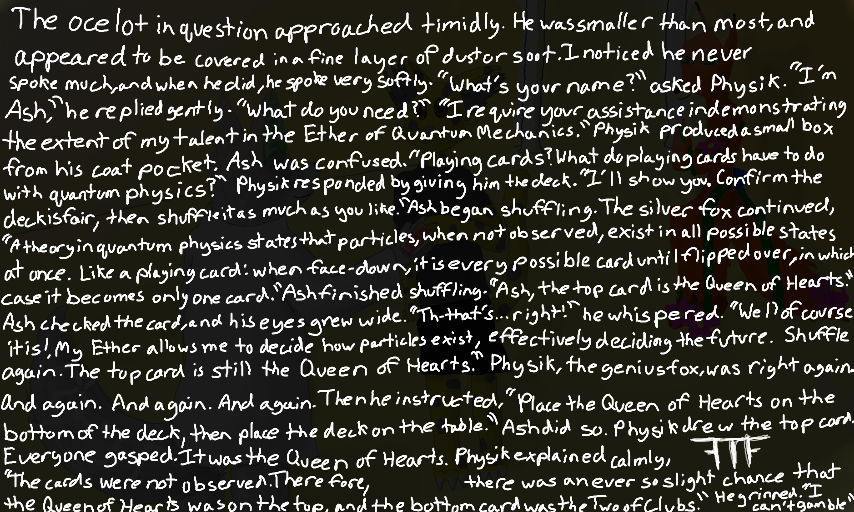 The ocelot in question approached timidly. He was smaller than most, and
appeared to be covered in a fine layer of dust or soot. I noticed he never
spoke much, and when he did, he spoke very softly. "What's your name?" asked Physik. "I'm
Ash," he replied gently. "What do you need?" "I require your assistance in demonstrating
the extent of my talent in the Ether of Quantum Mechanics." Physik produced a small box
from his coat pocket. Ash was confused. "Playing cards? What do playing cards have to do
with quantum physics?" Physik responded by giving him the deck. "I'll show you. Confirm the
deck is fair, then shuffle it as much as you like." Ash began shuffling. The silver fox continued,
"A theory in quantum physics states that particles, when not observed, exist in all possible states
at once. Like a playing card: when face-down, it is every possible card until flipped over, in which
case it becomes only one card." Ash finished shuffling. "Ash, the top card is the Queen of Hearts."
Ash checked the card, and his eyes grew wide. "Th-that's... right!" he whispered. "Well of course
it is! My Ether allows me to decide how particles exist, effectively deciding the future. Shuffle
again. The top card is still the Queen of Hearts." Physik, the genius fox, was right again.
And again. And again. And again. Then he instructed, "Place the Queen of Hearts on the
bottom of the deck, then place the deck on the table." Ash did so. Physik drew the top card.
Everyone gasped. It was the Queen of Hearts. Physik explained calmly,
"The cards were not observed. Therefore, there was an ever so slight chance that
the Queen of Hearts was on the top, and the bottom card was the Two of Clubs." He grinned. "I
can't gamble"